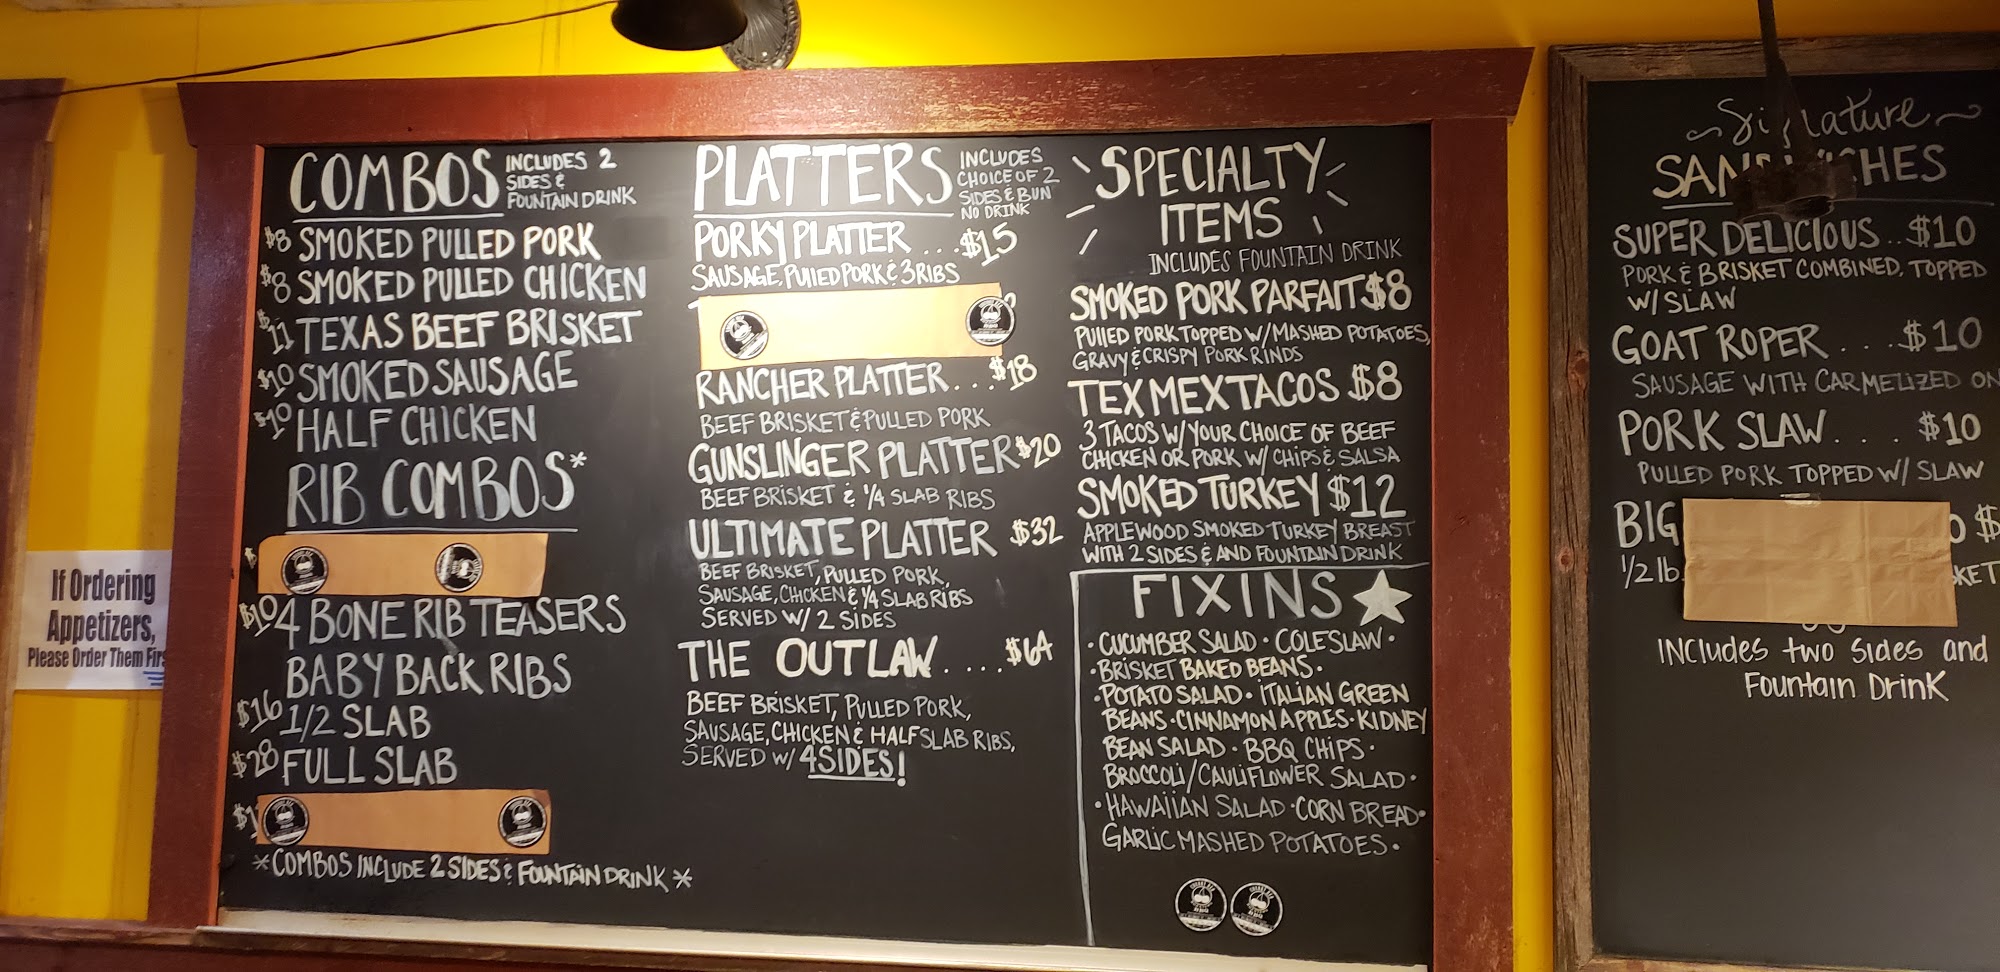 COMBOS INCLUDES 2
SIDES &
FOUNTAIN DRINK
$8 SMOKED PULLED PORK
$8 SMOKED PULLED CHICKEN
$11 TEXAS BEEF BRISKET
$10 SMOKED SAUSAGE
$10 HALF CHICKEN
RIB COMBOS*
$
$10 4 BONE RIB TEASERS
BABY BACK RIBS
$16 1/2 SLAB
$28 FULL SLAB
$1
*COMBOS INCLUDE 2 SIDES & FOUNTAIN DRINK*
PLATTERS INCLUDES
CHOICE OF 2
SIDES & BUN
NO DRINK
PORKY PLATTER ... $15
SAUSAGE, PULLED PORK & 3 RIBS
RANCHER PLATTER... $18
BEEF BRISKET & PULLED PORK
GUNSLINGER PLATTER $20
BEEF BRISKET & 1/4 SLAB RIBS
ULTIMATE PLATTER $32
BEEF BRISKET, PULLED PORK,
SAUSAGE, CHICKEN & 1/4 SLAB RIBS
SERVED W/ 2 SIDES
THE OUTLAW.... $64
BEEF BRISKET, PULLED PORK,
SAUSAGE, CHICKEN & HALF SLAB RIBS,
SERVED W/ 4 SIDES!
SPECIALTY
ITEMS
INCLUDES FOUNTAIN DRINK
SMOKED PORK PARFAIT $8
PULLED PORK TOPPED W/ MASHED POTATOES,
GRAVY & CRISPY PORK RINDS
TEX MEX TACOS $8
3 TACOS W/ YOUR CHOICE OF BEEF
CHICKEN OR PORK W/ CHIPS & SALSA
SMOKED TURKEY $12
APPLEWOOD SMOKED TURKEY BREAST
WITH 2 SIDES & AND FOUNTAIN DRINK
FIXINS
• CUCUMBER SALAD • COLESLAW •
• BRISKET BAKED BEANS •
• POTATO SALAD • ITALIAN GREEN
BEANS • CINNAMON APPLES • KIDNEY
BEAN SALAD • BBQ CHIPS •
BROCCOLI/CAULIFLOWER SALAD •
• HAWAIIAN SALAD • CORN BREAD •
GARLIC MASHED POTATOES •
Signature
SANDWICHES
SUPER DELICIOUS.. $10
PORK & BRISKET COMBINED, TOPPED
W/ SLAW
GOAT ROPER . . . $10
SAUSAGE WITH CARMELIZED ON
PORK SLAW. . . $10
PULLED PORK TOPPED W/ SLAW
BIG $
1/2 lb. KET
INCLUDES two SIDES and
Fountain DRINK
If Ordering
Appetizers,
Please Order Them Firs